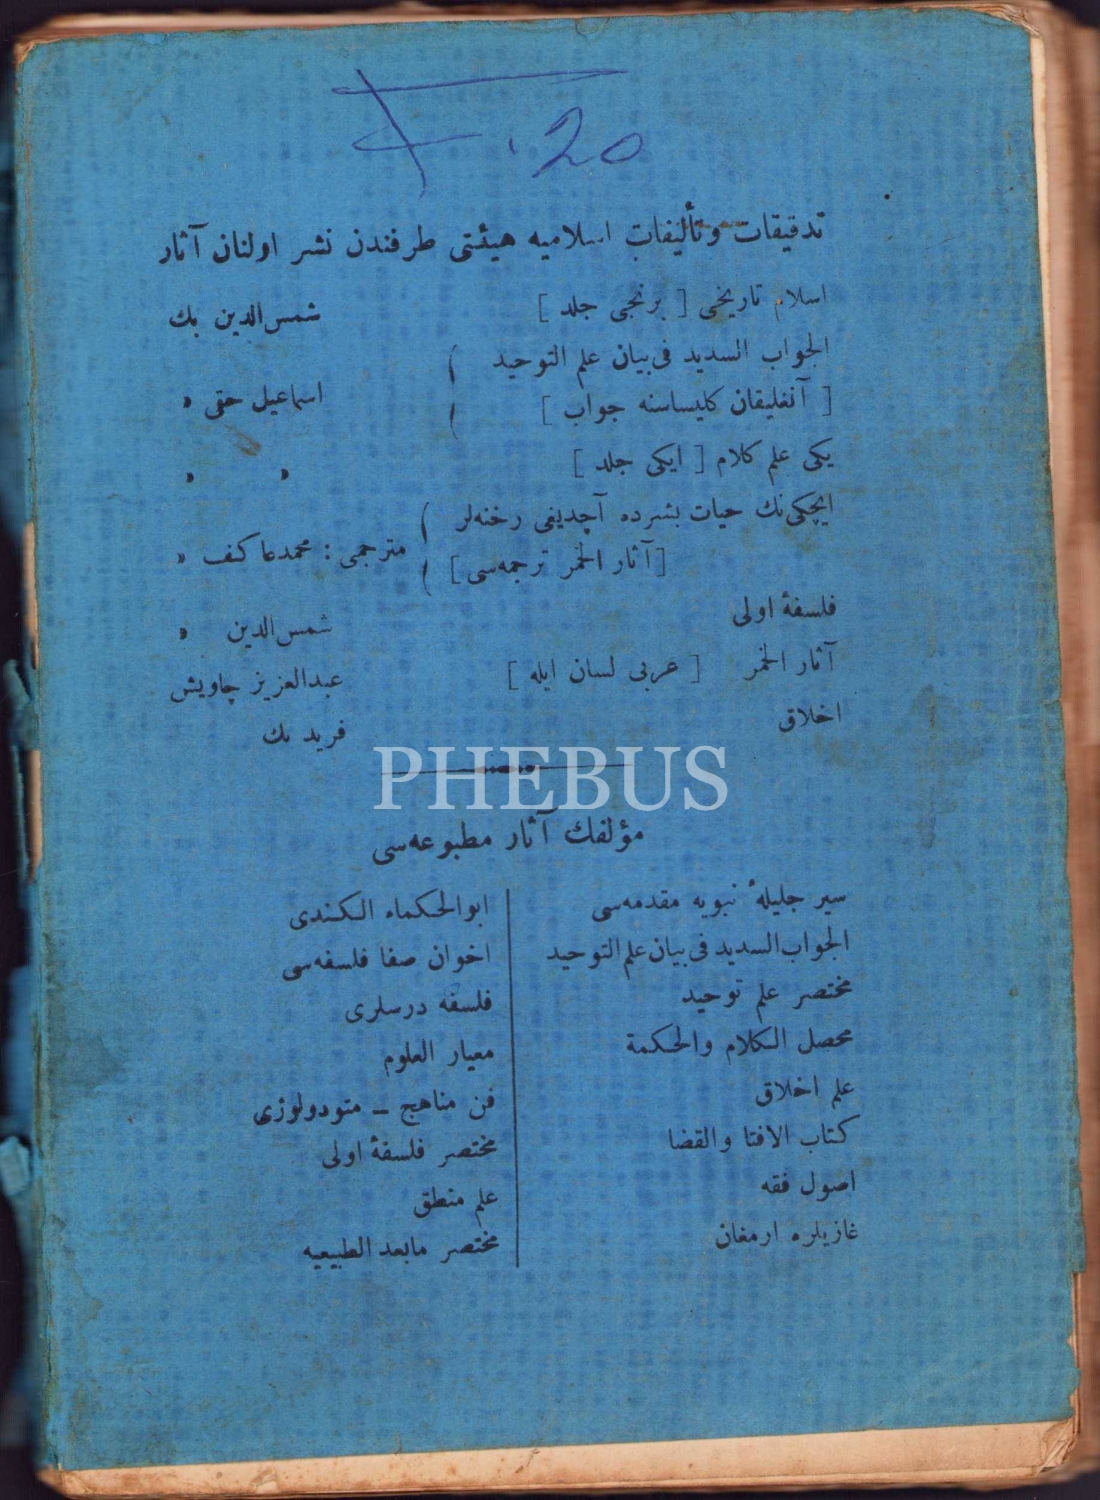 20
تدقیقات و تألیفات اسلامیه هیئتی طرفندن نشر اولنان آثار
اسلام تاریخی [ برنجی جلد ] شمس‌الدین بك
الجواب السدید فی‌بیان علم التوحید
[ آنغلیقان کلیساسنه جواب ] اسماعیل حقی »
یکی علم کلام [ ایکی جلد ] » »
ایچکی‌نك حیات بشرده آچدیغی رخنه‌لر
[ آثار الخمر ترجمه‌سی ] مترجمی : محمدعاکف »
فلسفهٔ اولی شمس‌الدین »
آثار الخمر [ عربی لسان ایله ] عبدالعزیز چاویش
اخلاق فرید بك
PHEBUS
مؤلفك آثار مطبوعه‌سی
سیر جلیلهٔ نبویه مقدمه‌سی
الجواب‌السدیدفی‌بیان‌علم‌التوحید
مختصر علم توحید
محصل الکلام والحکمة
علم اخلاق
کتاب الافتا والقضا
اصول فقه
غازیلره ارمغان
ابوالحکماء الکندی
اخوان صفا فلسفه‌سی
فلسفه درسلری
معیار العلوم
فن مناهج – متودولوژی
مختصر فلسفهٔ اولی
علم منطق
مختصر مابعد الطبیعیه